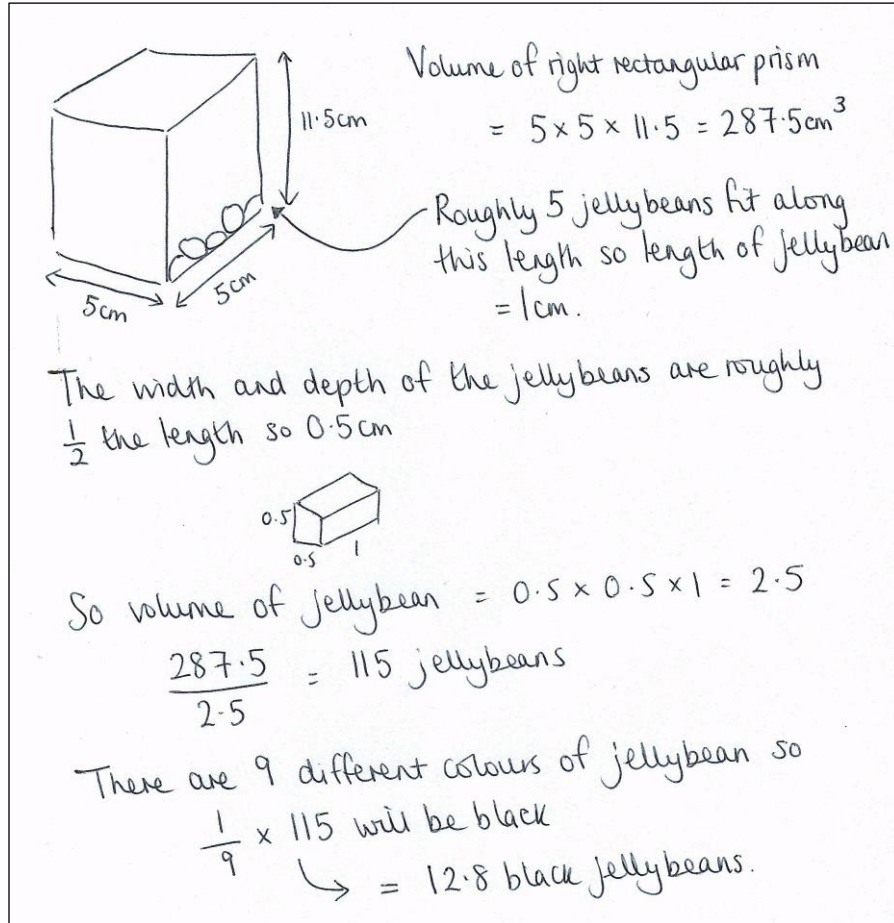 Volume of right rectangular prism
= 5 × 5 × 11·5 = 287·5cm³
11·5cm
Roughly 5 jellybeans fit along
this length so length of jellybean
= 1cm.
5cm
5cm
The width and depth of the jellybeans are roughly
1/2 the length so 0·5cm
0·5
0·5
1
So volume of jellybean = 0·5 × 0·5 × 1 = 2·5
287·5
2·5
= 115 jellybeans
There are 9 different colours of jellybean so
1/9 × 115 will be black
= 12·8 black jellybeans.